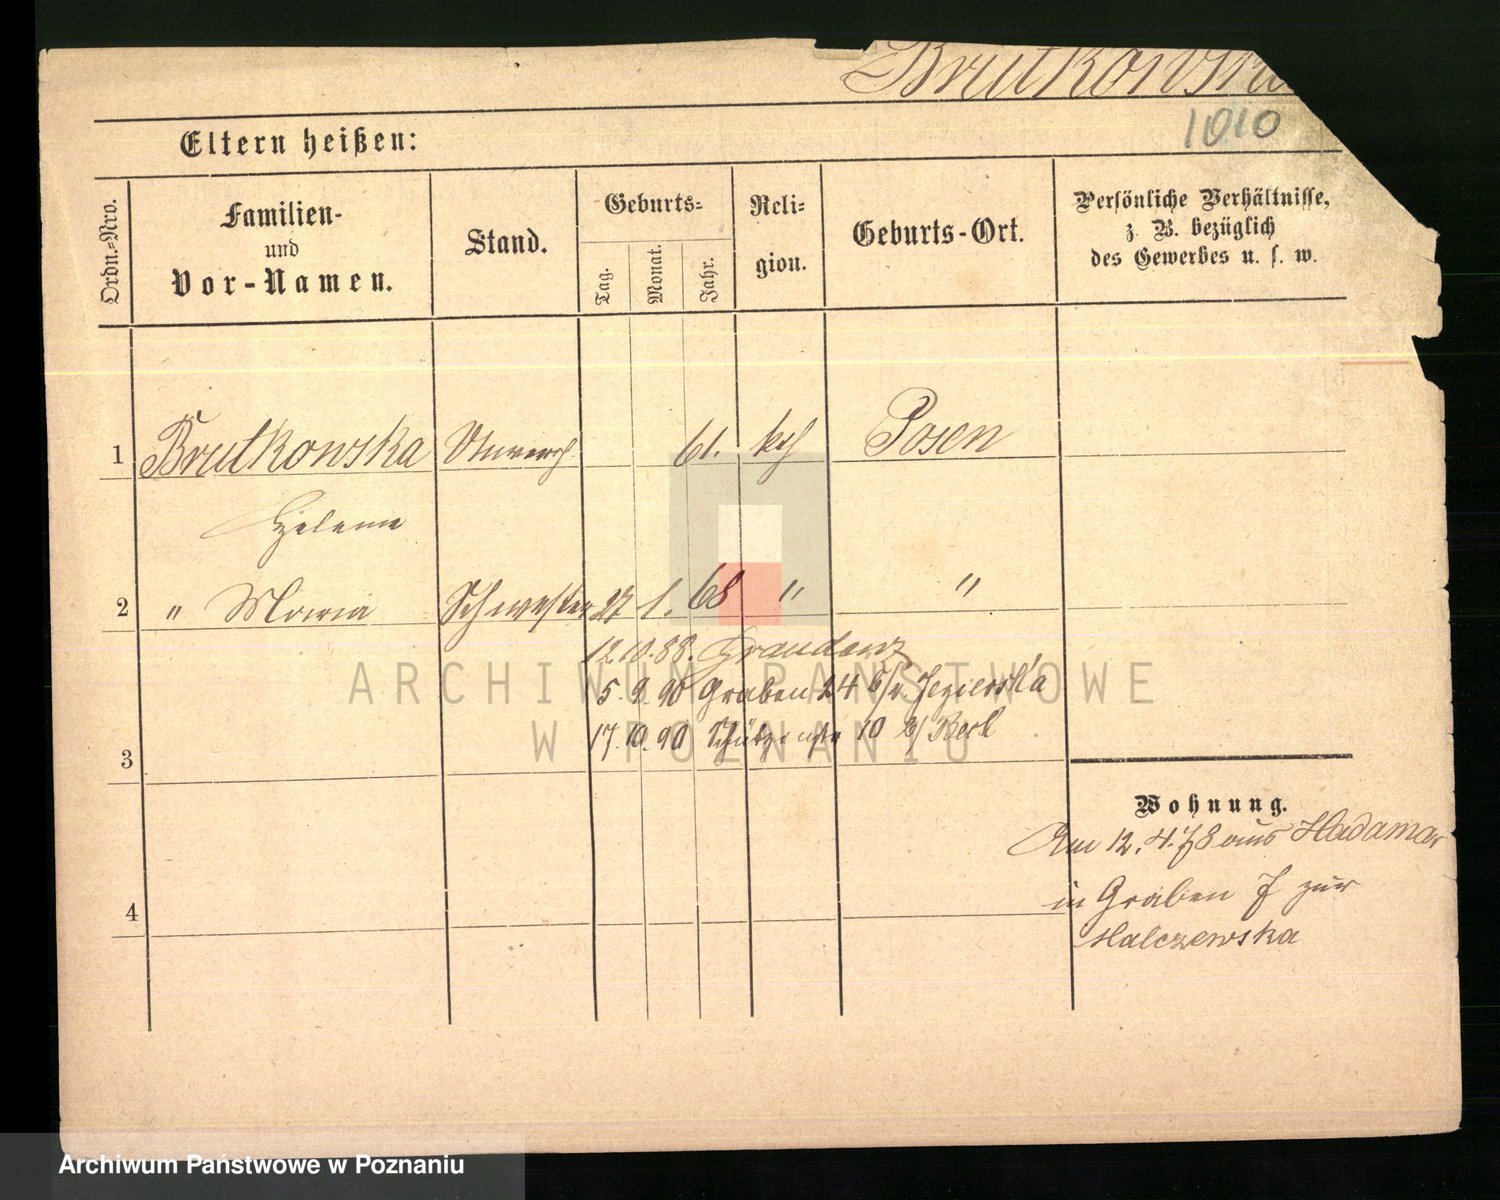 Brutkowska
1010
Eltern heißen:
Ordn.=Nro.
Familien-
und
Vor-Namen.
Stand.
Geburts=
Tag.
Monat.
Jahr.
Reli-
gion.
Geburts-Ort.
Persönliche Verhältnisse,
z. B. bezüglich
des Gewerbes u. s. w.
1 Brutkowska 61. kth Posen
Helene
2 " Maria Schwester 27 1. 68 " "
12.11.88. Graudenz
5.9.90 Graben 24 b/v. Jezierska
17.10.90 10 b/ Berl
3
Wohnung.
Am 12.4.78 aus Hadamar
in Graben 7 zur
Malczewska
4
ARCHIWUM PAŃSTWOWE
W POZNANIU
Archiwum Państwowe w Poznaniu